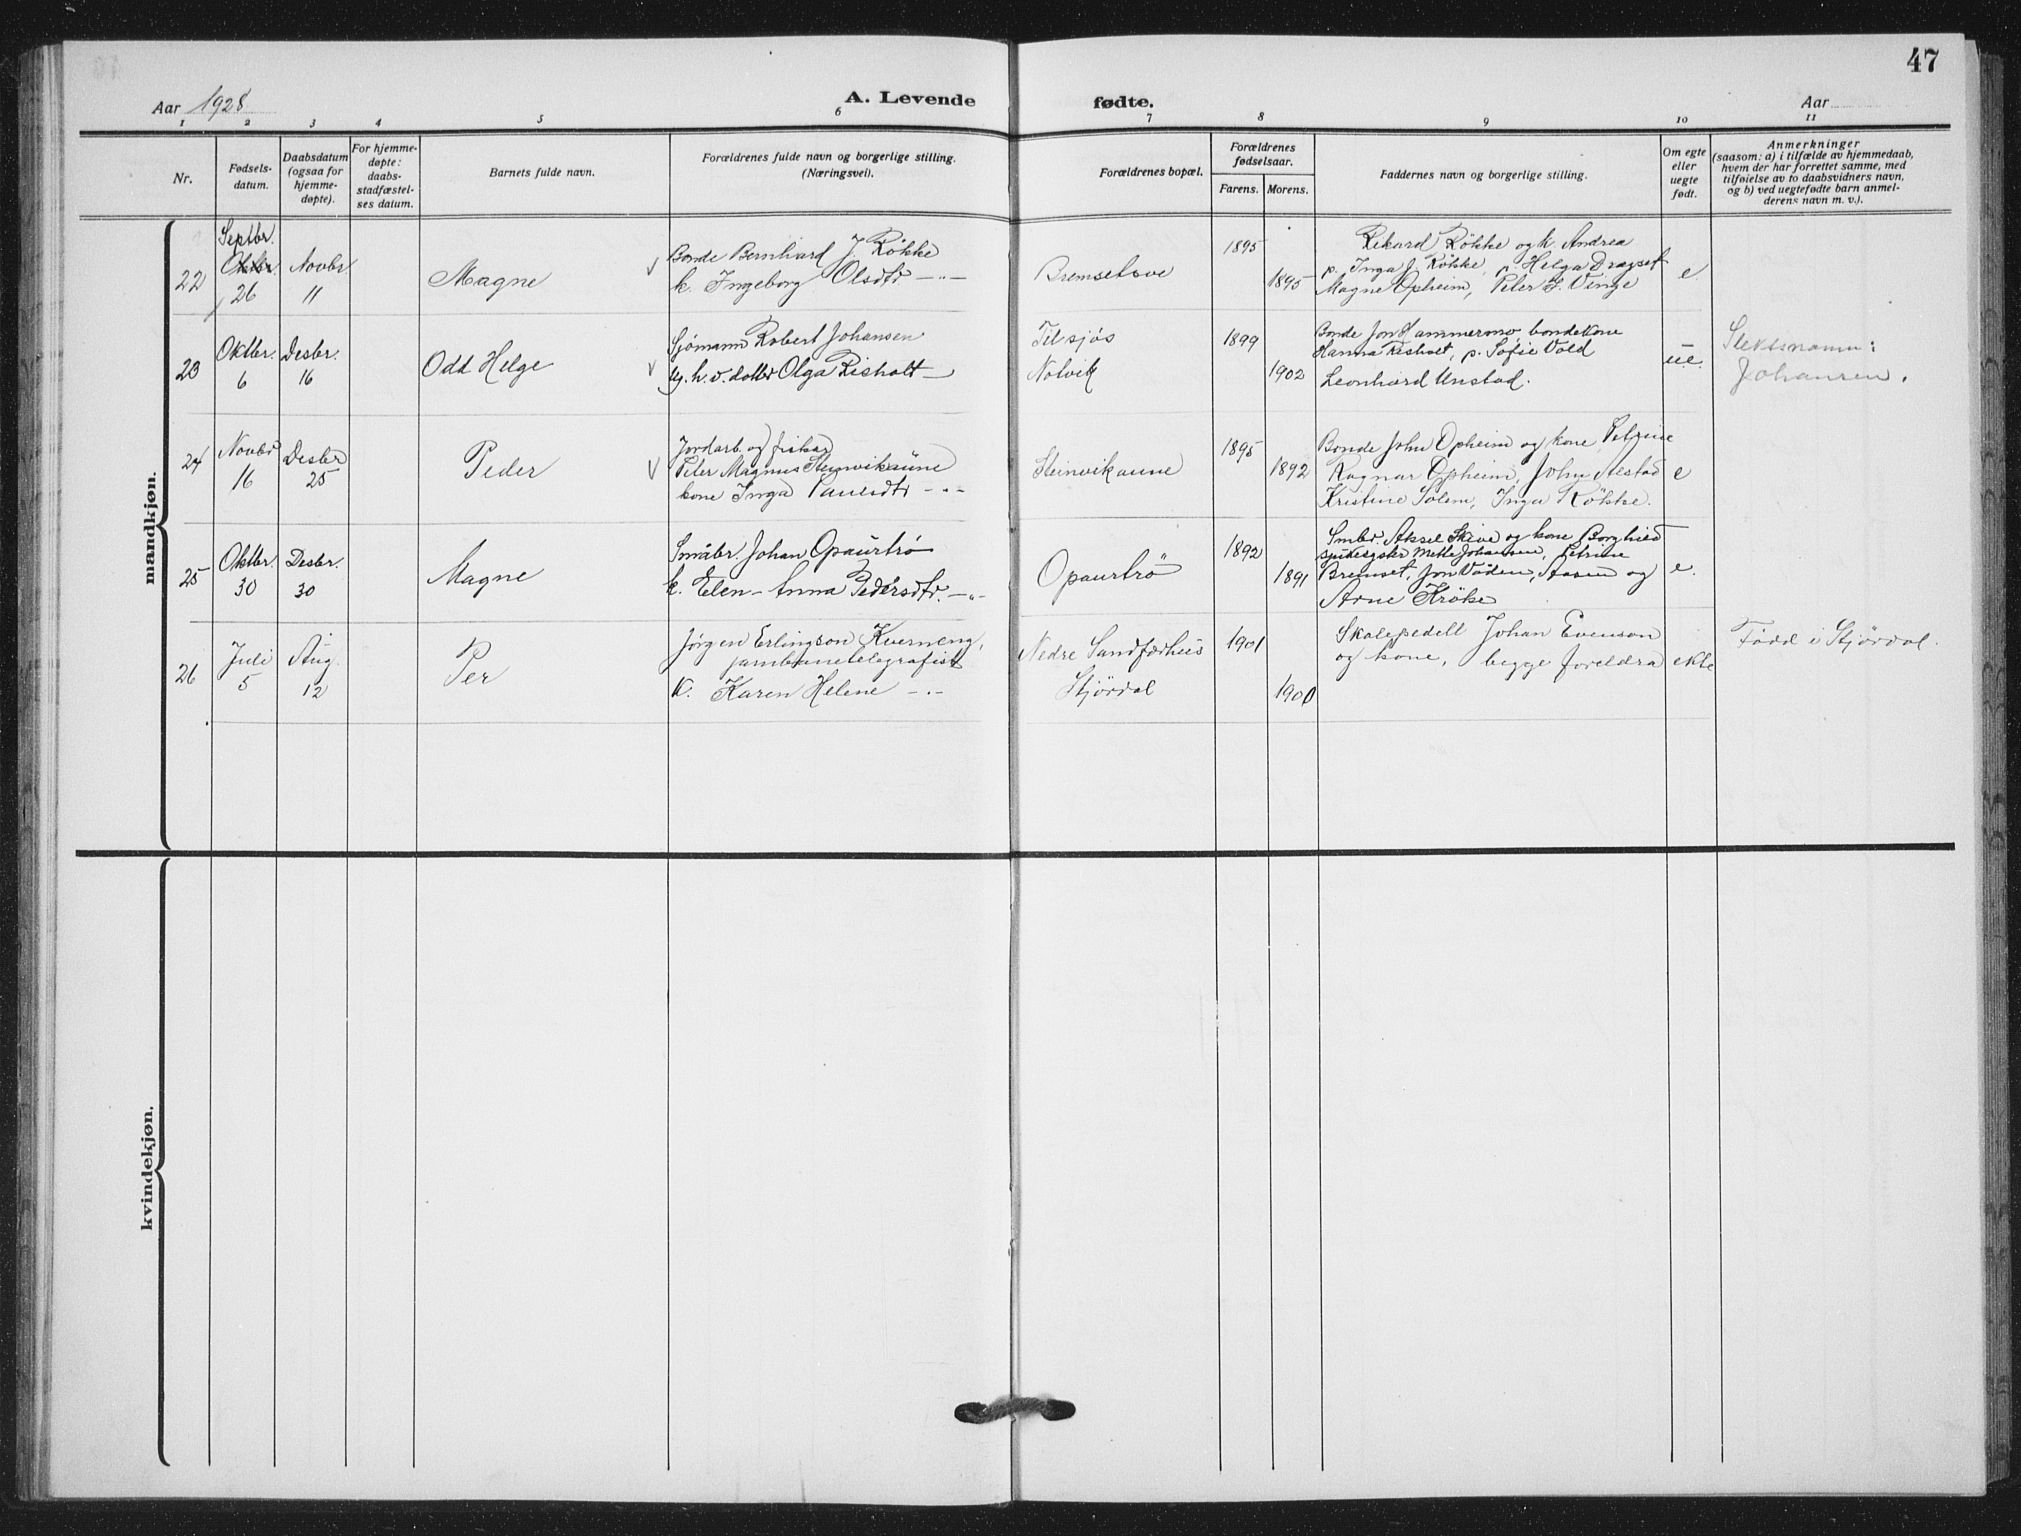 47
Aar 1928
A. Levende fødte.
Aar
1 2 3 4 5 6 7 8 9 10 11
Nr.
Fødsels-
datum.
Daabsdatum
(ogsaa for
hjemme-
døpte).
For hjemme-
døpte:
daabs-
stadfæstel-
ses datum.
Barnets fulde navn.
Forældrenes fulde navn og borgerlige stilling.
(Næringsvei).
Forældrenes bopæl.
Forældrenes
fødselsaar.
Farens. Morens.
Faddernes navn og borgerlige stilling.
Om egte
eller
uegte
født.
Anmerkninger
(saasom: a) i tilfælde av hjemmedaab,
hvem der har forrettet samme, med
tilføielse av to daabsvidners navn,
og b) ved uegtefødte barn anmel-
derens navn m. v.).
mandkjøn.
22
Septbr.
Oktbr
26
Novbr
11
Magne
Bonde Bernhard J. Røkke
k. Ingeborg Olsdtr —"—
Bremsetsve
1895
1895
Rikard Røkke og k. Andrea
p. Inga J. Røkke, p. Helga Dragset
Magne Opheim, Peter S. Vinge
e
23
Oktbr.
6
Desbr.
16
Odd Helge
Sjømann Robert Johansen
ug. h. v. dotter Olga Risholt —
Tilsjøs
Nolvik
1899
1902
Bonde Jon Hammermo bondekone
Hanna Risholt, p. Sofie Vold
Leonhard Unstad.
ue.
Slektsnamn:
Johansen.
24
Novbr
16
Desbr
25
Peder
Jordarb. og fisker
Peter Magnus Steinviksaune
kone Inga Paulsdtr —"—
Steinvikaune
1895
1892
Bonde John Opheim og kone Petrine
Ragnar Opheim, John Aestad
Kristine Solem, Inga Røkke.
e
25
Oktbr.
30
Desbr.
30
Magne
Småbr. Johan Opaurtrø
k. Elen-Anna Pedersdtr. —"—
Opaurtrø
1892
1891
Smbr. Aksel Skive og kone Borghild
sjukesyster Mette Johansen, Petrine
Bremset, Jon Våden, Aasen og
Arne Krøke
e.
26
Juli
5
Aug.
12
Per
Jørgen Erlingson Kverneng,
jarnbanetelegrafist
K. Karen Helene —"—
Nedre Sandfærhus
Stjørdal
1901
1900
Skolepedell Johan Evenson
og kone, begge foreldra
ekte
Fødd i Stjørdal.
kvindekjøn.